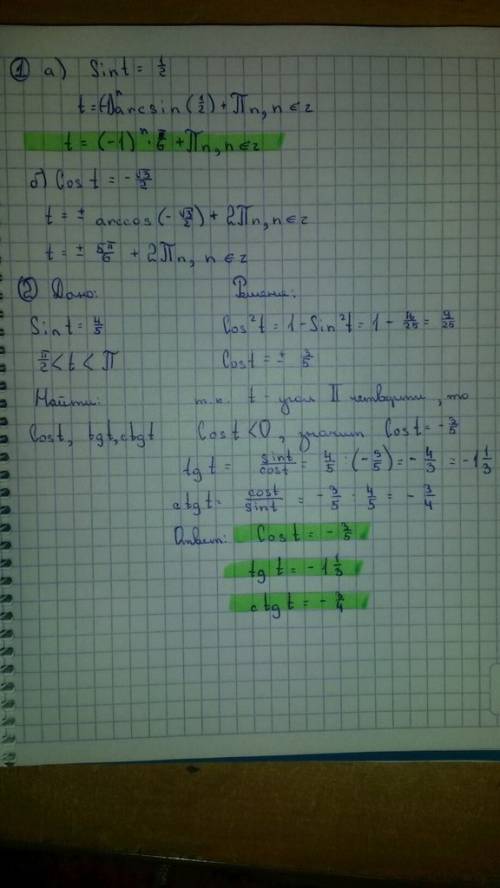 ① а) Sin t = 1/2
t = (-1)ⁿ arcsin (1/2) + Πn, n ∈ z
t = (-1)ⁿ · π/6 + Πn, n ∈ z
б) Cos t = - √3/2
t = ± arccos (- √3/2) + 2Πn, n ∈ z
t = ± 5π/6 + 2Πn, n ∈ z
② Дано:
Sin t = 4/5
π/2 < t < Π
Найти:
Cos t, tg t, ctg t
Решение:
Cos² t = 1 - Sin² t = 1 - 16/25 = 9/25
Cos t = ± 3/5
т.к. t - угол II четверти, то
Cos t < 0, значит Cos t = - 3/5
tg t = sin t/cos t = 4/5 : (- 3/5) = - 4/3 = -1 1/3
ctg t = cos t/sin t = - 3/5 · 4/5 = - 3/4
Ответ: Cos t = - 3/5
tg t = - 1 1/3
ctg t = - 3/4